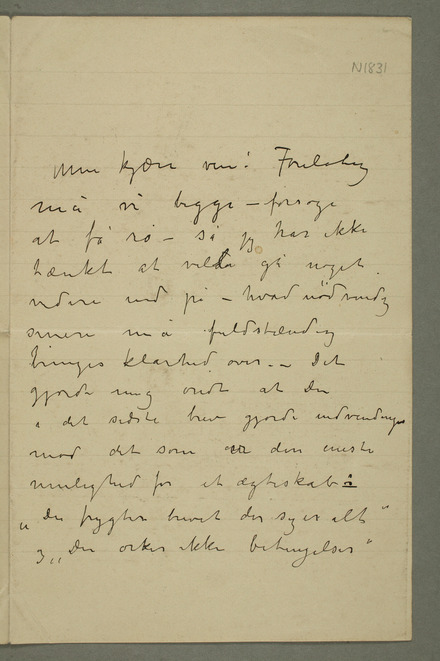 N1831
Min kjære ven! Foreløbig
må vi begge – forsøge
at få ro – så jeg har ikke
tænkt at vilde gå noget
videre ind på – hvad nødvendig
senere må fuldstændig
bringes klarhed over. – Det
gjorde mig ondt at Du
i det sidste brev gjorde indvendinger
mod det som er den eneste
mulighed for et ægteskab:
"Du frygter brevet der siger alt"
og "Du orker ikke betingelser"